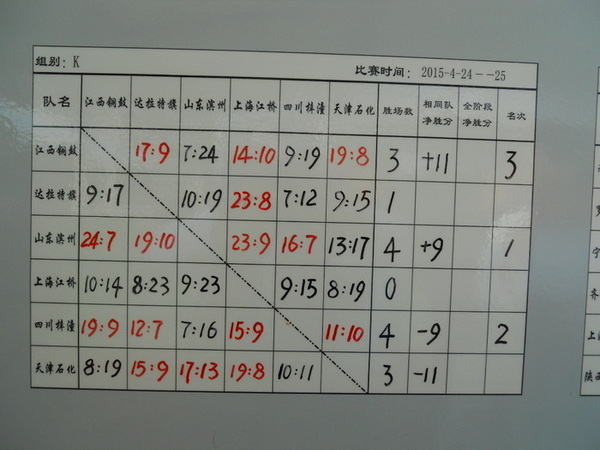 组别: K 比赛时间: 2015-4-24--25
队名 江西铜鼓 达拉特旗 山东滨州 上海江桥 四川梓潼 天津石化 胜场数 相同队净胜分 全阶段净胜分 名次
江西铜鼓 17:9 7:24 14:10 9:19 19:8 3 +11 3
达拉特旗 9:17 10:19 23:8 7:12 9:15 1
山东滨州 24:7 19:10 23:9 16:7 13:17 4 +9 1
上海江桥 10:14 8:23 9:23 9:15 8:19 0
四川梓潼 19:9 12:7 7:16 15:9 11:10 4 -9 2
天津石化 8:19 15:9 17:13 19:8 10:11 3 -11
宁
齐
上海
陕西